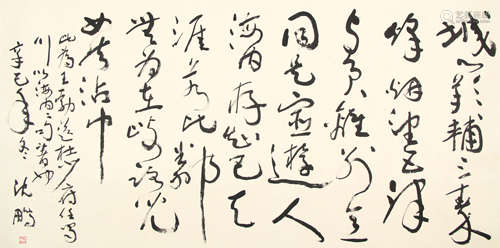 城闕輔三秦
烽烟望五津
与君離别意
同是宦遊人
海内存知己天
涯若比鄰
無为在歧路児
女共沾巾
此為王勃送杜少府任蜀
川以海内二句
辛巳年冬 沈鹏